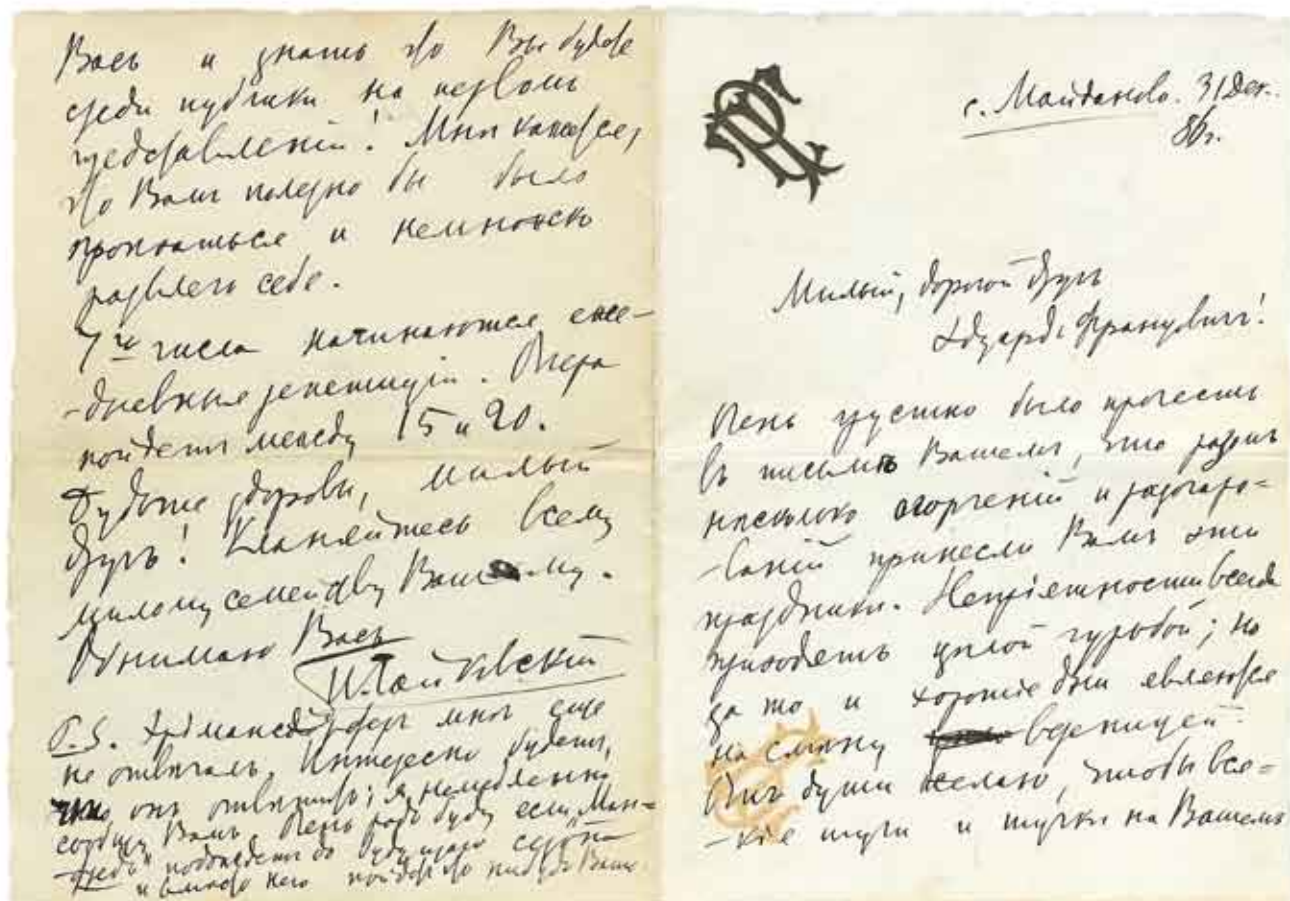 Васъ и знать что Вы будете
среди публики на первомъ
представленіи! Мнѣ кажется,
что Вамъ полезно бы было
прокатиться и немножко
развлечь себя.
7го числа начинаются еже-
-дневныя репетиціи. Опера
пойдетъ между 15 и 20.
Будьте здоровы, милый
другъ! Кланяйтесь всему
милому семейству Вашему.
Обнимаю Васъ
П. Чайковскій
P.S. Эрмансдёрферъ мнѣ еще
не отвѣчалъ. Интересно будетъ,
что онъ отвѣтитъ; я немедленно
сообщу Вамъ. Очень радъ буду если "Ман-
-фредъ" подождетъ до будущаго сезона
и вмѣсто него пойдетъ что нибудь Ваше.
с. Майданово. 31 Дек.
86г.
Милый, дорогой другъ
Эдуардъ Францовичъ!
Очень грустно было прочесть
въ письмѣ Вашемъ, что разомъ
нѣсколько огорченій и разочаро-
-ваній принесли Вамъ эти
праздники. Непріятности всегда
приходятъ цѣлой гурьбой; но
за то и хорошіе дни являются
на смѣну вереницей.
Отъ души желаю, чтобы вся-
-кіе тучи и тучки на Вашемъ